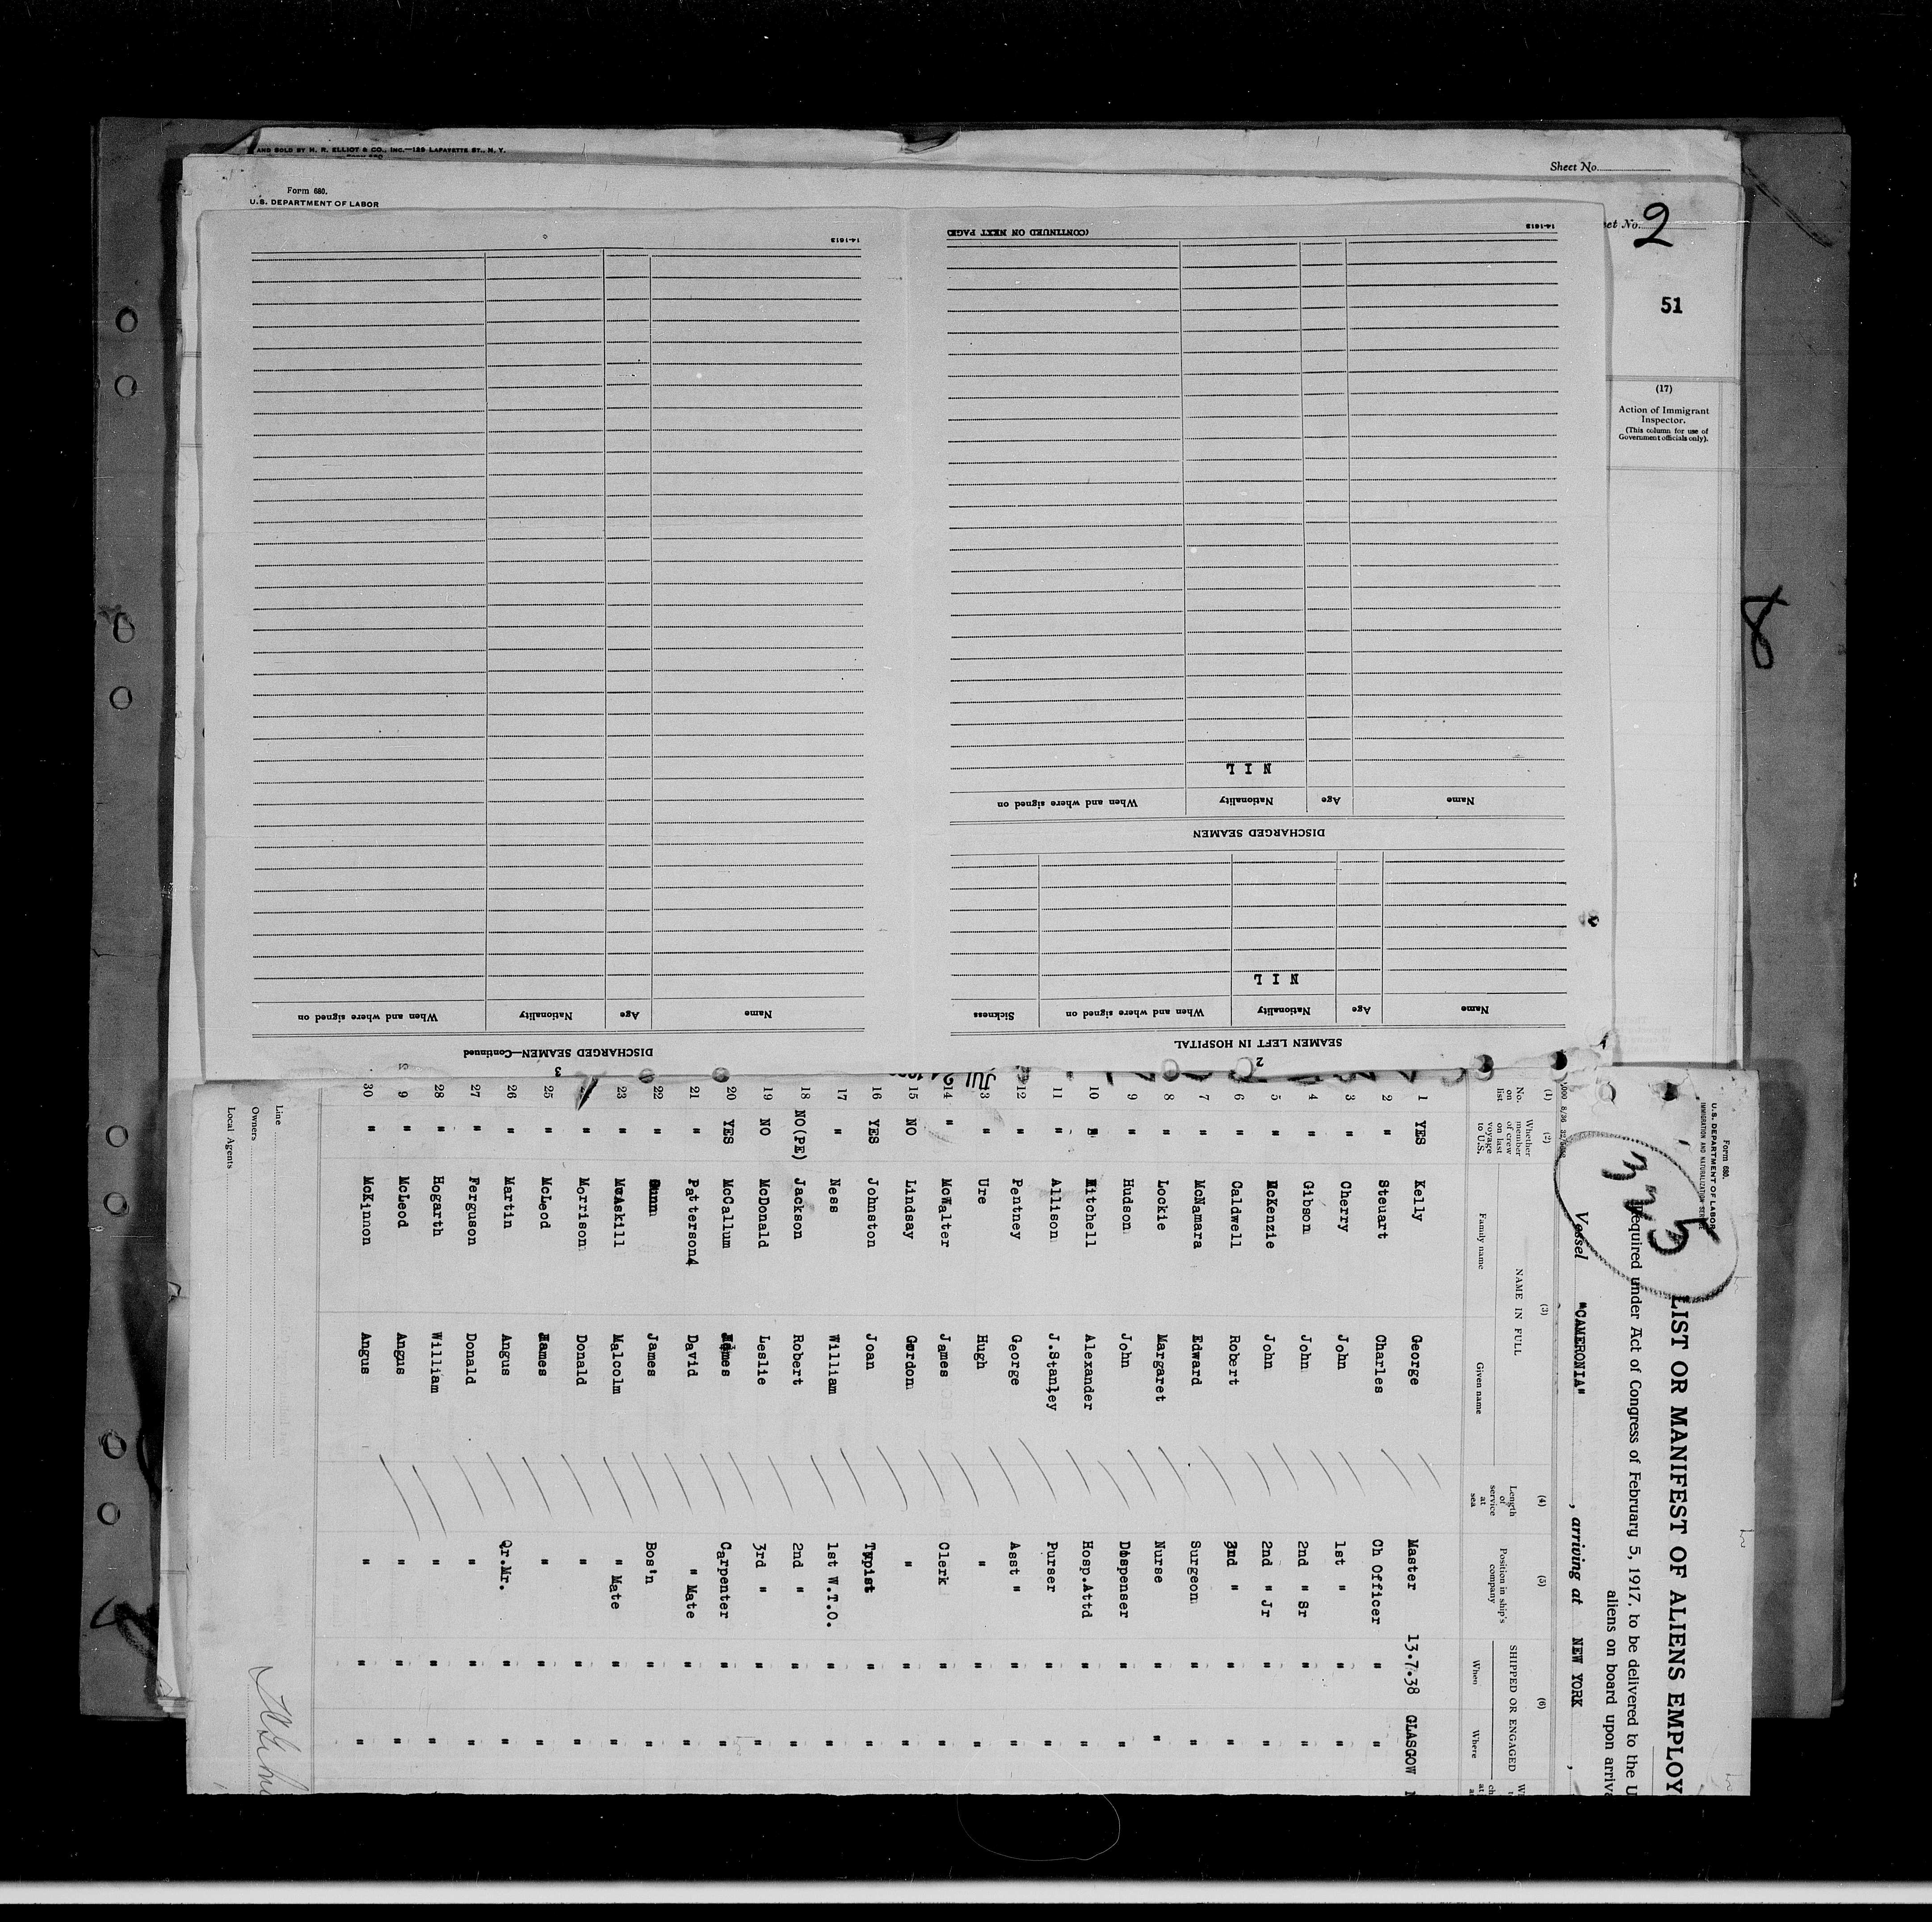 AND SOLD BY H. R. ELLIOT & CO., INC.—129 LAFAYETTE ST., N. Y.
Sheet No.
Form 680.
U.S. DEPARTMENT OF LABOR
et No. 2
51
(17)
Action of Immigrant
Inspector.
(This column for use of
Government officials only).
8
2
SEAMEN LEFT IN HOSPITAL
Name Age Nationality When and where signed on Sickness
N I L
DISCHARGED SEAMEN
Name Age Nationality When and where signed on
N I L
14-1613
(CONTINUED ON NEXT PAGE)
3
DISCHARGED SEAMEN—Continued
Name Age Nationality When and where signed on
14-1613
Form 680.
U.S. DEPARTMENT OF LABOR
IMMIGRATION AND NATURALIZATION SERVICE
325
LIST OR MANIFEST OF ALIENS EMPLOY
Required under Act of Congress of February 5, 1917, to be delivered to the U
aliens on board upon arriva
Vessel "CAMERONIA" , arriving at NEW YORK ,
(1) (2) (3) (4) (5) (6)
No. on list
Whether member of crew on last voyage to U.S.
NAME IN FULL
Family name Given name
Length of service at sea
Position in ship's company
SHIPPED OR ENGAGED
When Where
1 YES Kelly George Master 13.7.38 GLASGOW
2 " Steuart Charles Ch Officer " "
3 " Cherry John 1st " " "
4 " Gibson John 2nd " Sr " "
5 " McKenzie John 2nd " Jr " "
6 " Caldwell Robert 3rd " " "
7 " McNamara Edward Surgeon " "
8 " Lockie Margaret Nurse " "
9 " Hudson John Dispenser " "
10 " Mitchell Alexander Hosp.Attd " "
11 " Allison J.Stanley Purser " "
12 " Pentney George Asst " " "
13 " Ure Hugh " " "
14 " McWalter James Clerk " "
15 NO Lindsay Gordon " " "
16 YES Johnston Joan Typist " "
17 " Ness William 1st W.T.O. " "
18 NO(PE) Jackson Robert 2nd " " "
19 NO McDonald Leslie 3rd " " "
20 YES McCallum James Carpenter " "
21 " Patterson4 David " Mate " "
22 " Gunn James Bos'n " "
23 " McAskill Malcolm " Mate " "
" Morrison Donald " " "
25 " McLeod James " " "
26 " Martin Angus Qr.Mr. " "
27 " Ferguson Donald " " "
28 " Hogarth William " " "
9 " McLeod Angus " " "
30 " McKinnon Angus " " "
Line
Owners
Local Agents